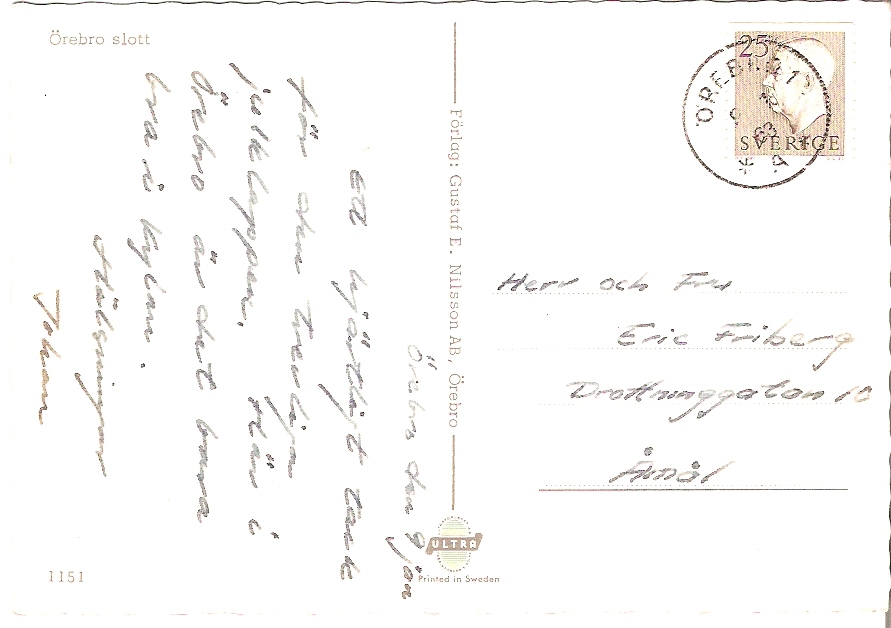 Örebro slott
Örebro den 9 jan
Ett hjärtligt tack
för den trevliga
julklappen. Här i
Örebro är det bara
bra i kylan.
Hälsningar
Johan
1151
Förlag: Gustaf E. Nilsson AB, Örebro
ULTRA
Printed in Sweden
25
SVERIGE
ÖREBRO 1
63
A
Herr och Fru
Eric Friberg
Drottninggatan 10
Åmål